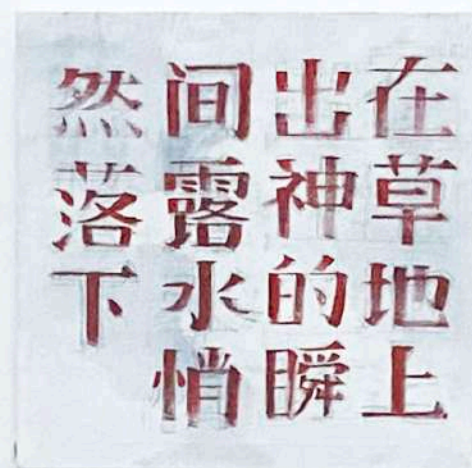 在草地上
出神的瞬
间露水悄
然落下